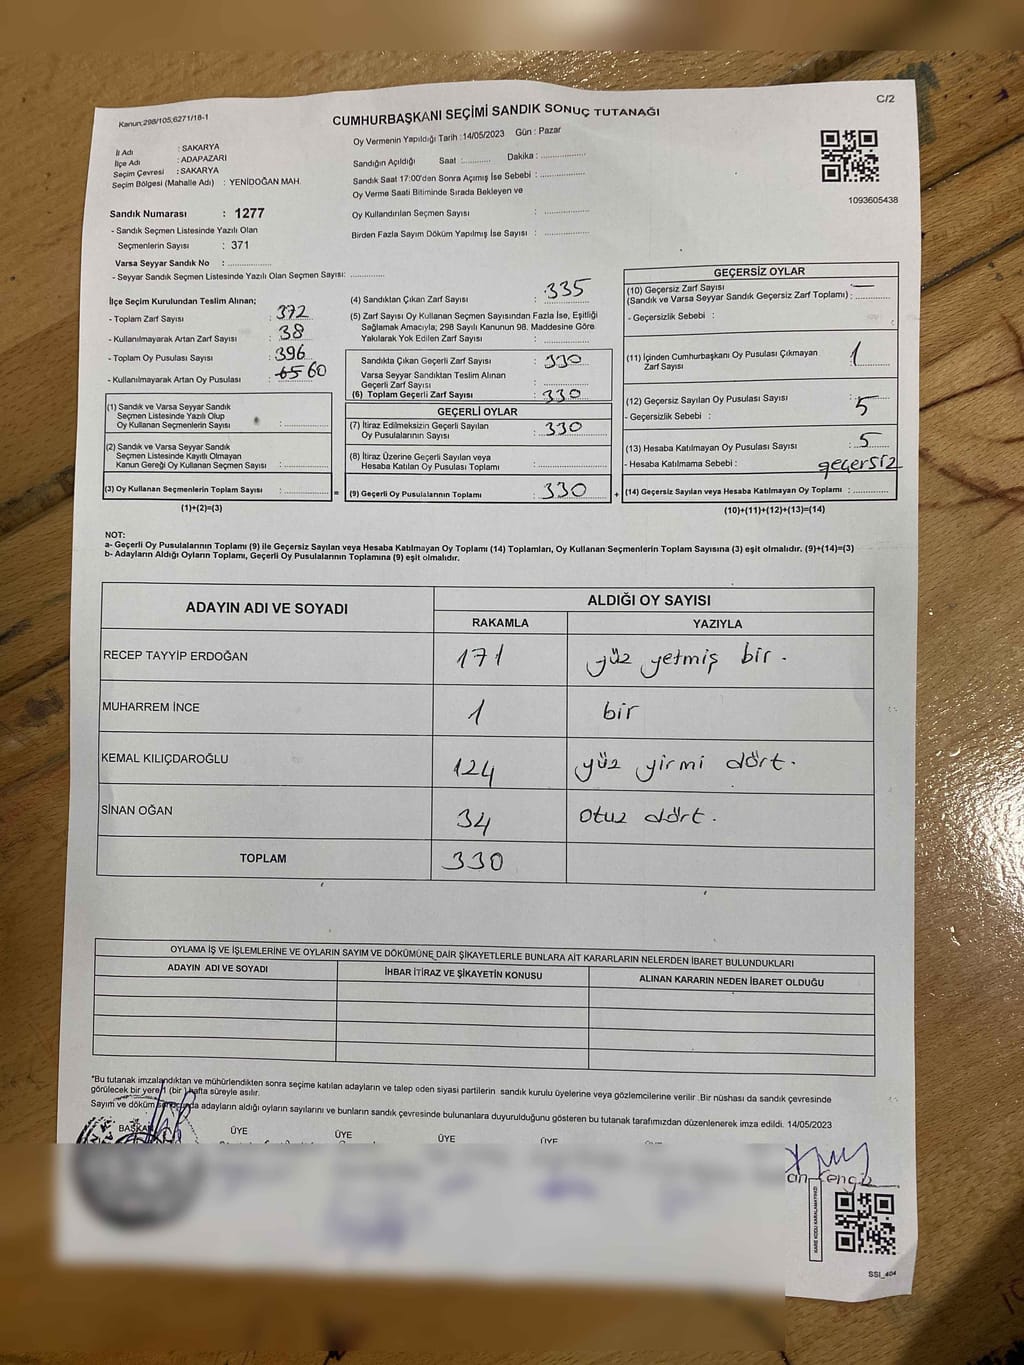 Kanun;298/105;6271/18-1
C/2
CUMHURBAŞKANI SEÇİMİ SANDIK SONUÇ TUTANAĞI
İl Adı : SAKARYA
İlçe Adı : ADAPAZARI
Seçim Çevresi : SAKARYA
Seçim Bölgesi (Mahalle Adı) : YENİDOĞAN MAH.
Oy Vermenin Yapıldığı Tarih :14/05/2023 Gün : Pazar
Sandığın Açıldığı Saat :........... Dakika : ................
Sandık Saat 17:00'den Sonra Açılmış İse Sebebi : ................
Oy Verme Saati Bitiminde Sırada Bekleyen ve
Oy Kullandırılan Seçmen Sayısı : ................
Birden Fazla Sayım Döküm Yapılmış İse Sayısı : ................
1093605438
Sandık Numarası : 1277
- Sandık Seçmen Listesinde Yazılı Olan
Seçmenlerin Sayısı : 371
Varsa Seyyar Sandık No : ................
- Seyyar Sandık Seçmen Listesinde Yazılı Olan Seçmen Sayısı: ............
İlçe Seçim Kurulundan Teslim Alınan;
- Toplam Zarf Sayısı : 372
- Kullanılmayarak Artan Zarf Sayısı : 38
- Toplam Oy Pusulası Sayısı : 396
- Kullanılmayarak Artan Oy Pusulası : 65 60
(1) Sandık ve Varsa Seyyar Sandık
Seçmen Listesinde Yazılı Olup
Oy Kullanan Seçmenlerin Sayısı : ................
(2) Sandık ve Varsa Seyyar Sandık
Seçmen Listesinde Kayıtlı Olmayan
Kanun Gereği Oy Kullanan Seçmen Sayısı : ................
(3) Oy Kullanan Seçmenlerin Toplam Sayısı : ................
=
(1)+(2)=(3)
(4) Sandıktan Çıkan Zarf Sayısı : 335
(5) Zarf Sayısı Oy Kullanan Seçmen Sayısından Fazla İse, Eşitliği
Sağlamak Amacıyla; 298 Sayılı Kanunun 98. Maddesine Göre
Yakılarak Yok Edilen Zarf Sayısı : ................
Sandıkta Çıkan Geçerli Zarf Sayısı : 330
Varsa Seyyar Sandıktan Teslim Alınan
Geçerli Zarf Sayısı : ................
(6) Toplam Geçerli Zarf Sayısı : 330
GEÇERLİ OYLAR
(7) İtiraz Edilmeksizin Geçerli Sayılan
Oy Pusulalarının Sayısı : 330
(8) İtiraz Üzerine Geçerli Sayılan veya
Hesaba Katılan Oy Pusulası Toplamı : ................
(9) Geçerli Oy Pusulalarının Toplamı : 330
+
GEÇERSİZ OYLAR
(10) Geçersiz Zarf Sayısı —
(Sandık ve Varsa Seyyar Sandık Geçersiz Zarf Toplamı) : ............
- Geçersizlik Sebebi :
(11) İçinden Cumhurbaşkanı Oy Pusulası Çıkmayan
Zarf Sayısı : 1
(12) Geçersiz Sayılan Oy Pusulası Sayısı : 5
- Geçersizlik Sebebi :
(13) Hesaba Katılmayan Oy Pusulası Sayısı : 5
- Hesaba Katılmama Sebebi : geçersiz
(14) Geçersiz Sayılan veya Hesaba Katılmayan Oy Toplamı : ............
(10)+(11)+(12)+(13)=(14)
NOT:
a- Geçerli Oy Pusulalarının Toplamı (9) ile Geçersiz Sayılan veya Hesaba Katılmayan Oy Toplamı (14) Toplamları, Oy Kullanan Seçmenlerin Toplam Sayısına (3) eşit olmalıdır. (9)+(14)=(3)
b- Adayların Aldığı Oyların Toplamı, Geçerli Oy Pusulalarının Toplamına (9) eşit olmalıdır.
ADAYIN ADI VE SOYADI
ALDIĞI OY SAYISI
RAKAMLA YAZIYLA
RECEP TAYYİP ERDOĞAN 171 yüz yetmiş bir .
MUHARREM İNCE 1 bir
KEMAL KILIÇDAROĞLU 124 yüz yirmi dört .
SİNAN OĞAN 34 otuz dört .
TOPLAM 330
OYLAMA İŞ VE İŞLEMLERİNE VE OYLARIN SAYIM VE DÖKÜMÜNE DAİR ŞİKAYETLERLE BUNLARA AİT KARARLARIN NELERDEN İBARET BULUNDUKLARI
ADAYIN ADI VE SOYADI İHBAR İTİRAZ VE ŞİKAYETİN KONUSU ALINAN KARARIN NEDEN İBARET OLDUĞU
*Bu tutanak imzalandıktan ve mühürlendikten sonra seçime katılan adayların ve talep eden siyasi partilerin sandık kurulu üyelerine veya gözlemcilerine verilir .Bir nüshası da sandık çevresinde
görülecek bir yere 1 (bir ) hafta süreyle asılır.
Sayım ve döküm adayların aldığı oyların sayılarını ve bunların sandık çevresinde bulunanlara duyurulduğunu gösteren bu tutanak tarafımızdan düzenlenerek imza edildi. 14/05/2023
BAŞKAN ÜYE ÜYE ÜYE ÜYE
KARE KODU KARALAMAYINIZ!
SSI_404